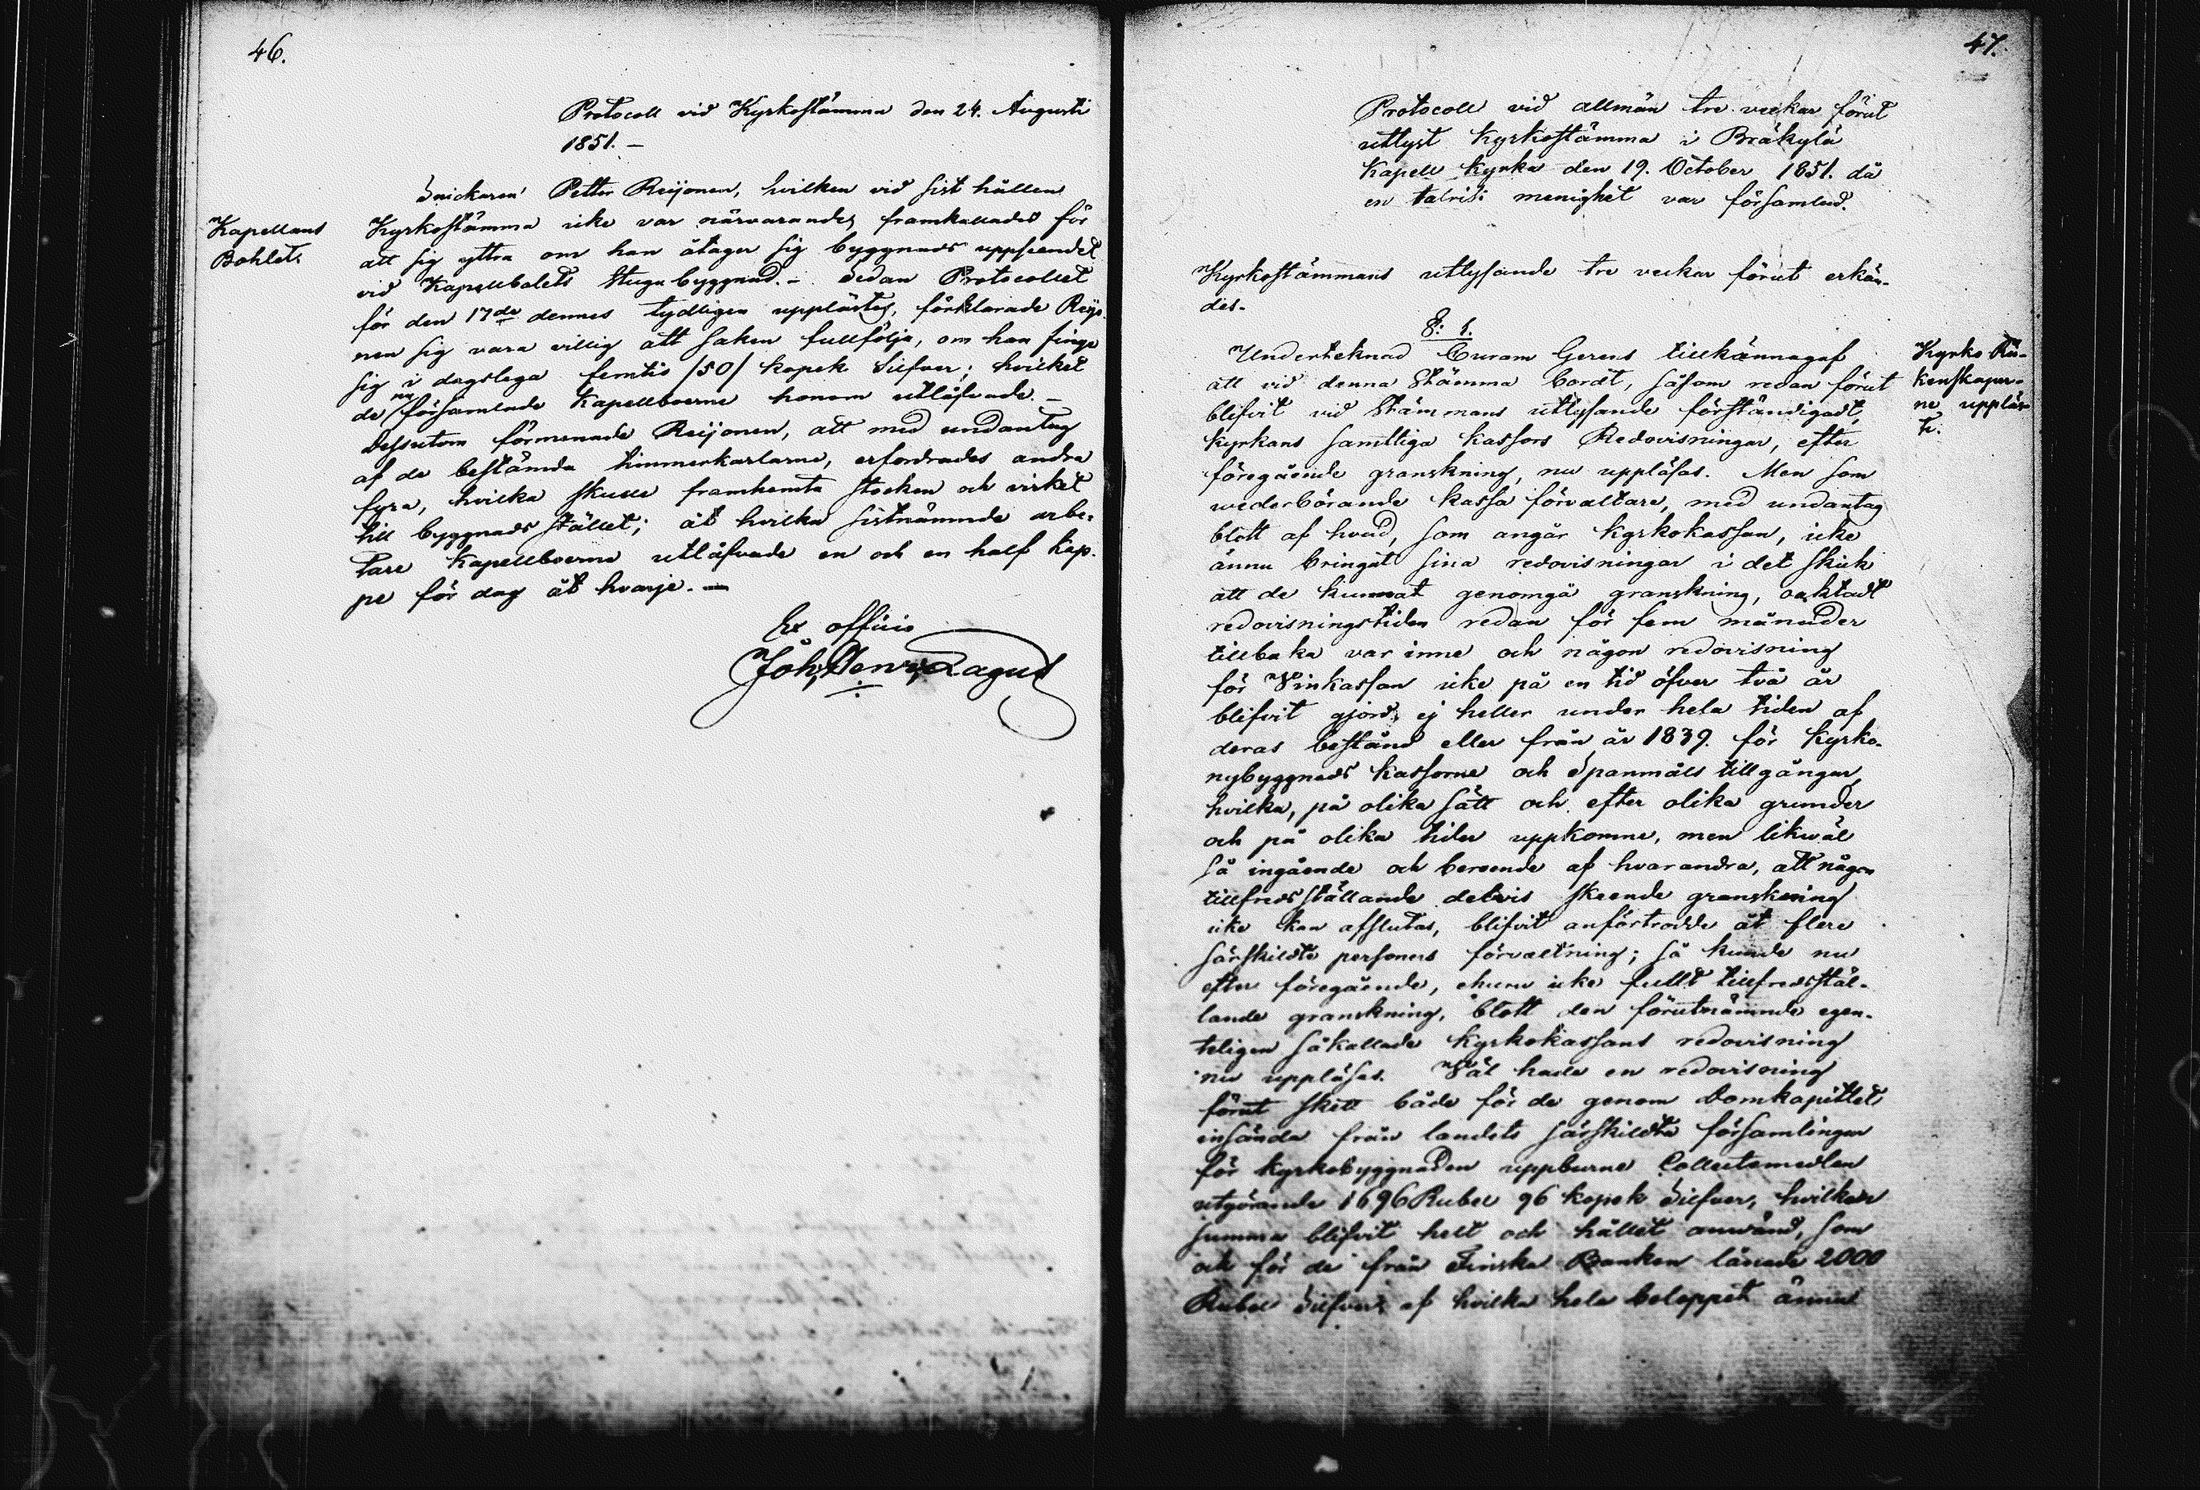 46.
Protocoll vid Kyrkostämma den 24. Augusti
1851. —
Snickaren Petter Reijonen, hvilken vid sist hållen
Kapellans
Bohlet.
Kyrkostämma icke var närvarande, framkallades för
att sig yttra om han åtager sig byggnads uppseendet
vid Kapellbolets Stugubyggnad. – Sedan Protocollet
för den 17de dennes tydligen upplästes, förklarade Reijo-
nen sig vara villig att saken fullfölja, om han finge
sig i dagslega femtio /50/ kopek Silfver; hvilket
de nu församlade Kapellboerne honom utlåfvade. —
Dessutom förmenade Reijonen, att med undantag
af de bestämda timmerkarlarne, erfordrades andra
fyra, hvilka skulle framhemta stocken och virket
till byggnads stället; åt hvilka sistnämnde arbe-
tare Kapellboerne utlåfvade en och en half kap-
pe för dag åt hvarje. —
Ex officio
Joh. Henr. Lagus
47.
Protocoll vid allmän tre veckor förut
utlyst Kyrkostämma i Bräkylä
Kapell Kyrka den 19. October 1851. då
en talrik menighet var församlad.
Kyrkostämmans utlysande tre veckor förut erkän-
des.
§: 1.
Kyrko Rä-
kenskaper-
ne uppläs-
te.
Undertecknad Curam Gerens tillkännagaf
att vid denna Stämma bordt, såsom redan förut
blifvit vid Stämmans utlysande förständigadt,
Kyrkans samtliga kassors Redovisningar, efter
föregående granskning, nu uppläsas. Men som
wederbörande kassa förvaltare, med undantag
blott af hvad, som angår Kyrkokassan, icke
ännu bringat sina redovisningar i det skick
att de kunnat genomgå granskning, oaktadt
redovisningstiden redan för fem månader
tillbaka var inne och någon redovisning
för Vinkassan icke på en tid öfver två år
blifvit gjord, ej heller under hela tiden af
deras bestånd eller från år 1839. för Kyrko-
nybyggnads kassorne och Spanmåls tillgångar,
hvilka, på olika sätt och efter olika grunder
och på olika tider uppkomne, men likwäl
så ingående och beroende af hvarandra, att någon
tillfredsställande delvis skeende granskning
icke kan afslutas, blifvit anförtrodde åt flere
särskildte personers förvaltning; så kunde nu
efter föregående, ehuru icke fullt tillfredsstäl-
lande granskning, blott den förutnämnde egen-
teligen såkallade Kyrkokassans redovisning
nu uppläsas. Wäl hade en redovisning
förut skett både för de genom Domkapitlet
insända från landets särskildte församlingar
för Kyrkobyggnaden uppburne Collectemedlen
utgörande 1696 Rubel 96 kopek Silfver, hvilken
summa blifvit helt och hållet använd, som
och för de från Finska Banken lånade 2000
Rubel Silfver, af hvilka hela beloppet ännu